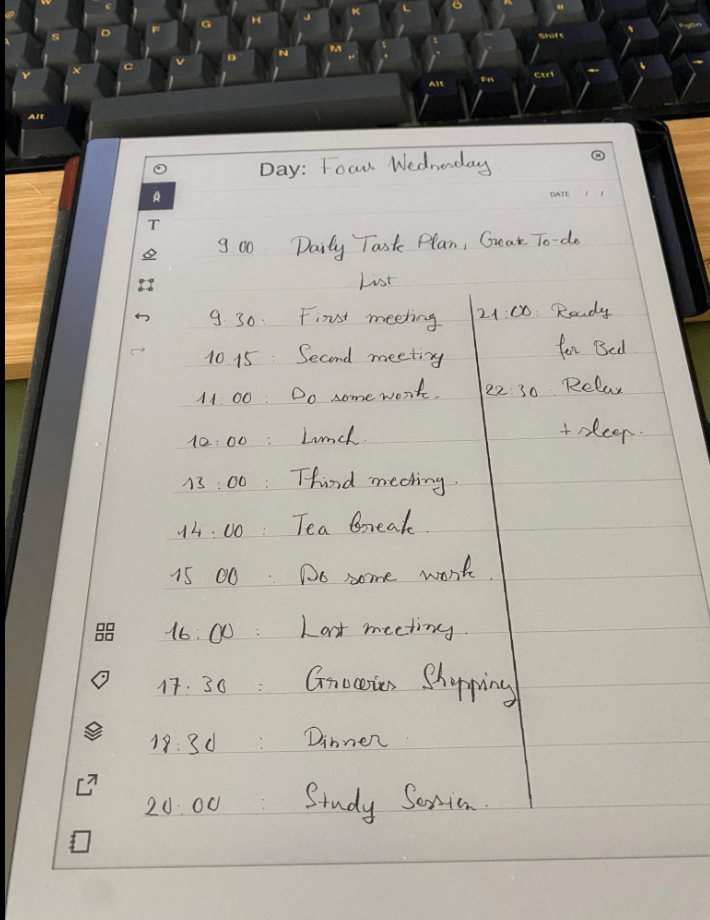 Day: Focus Wednesday
DATE / /
9 00 Daily Task Plan, Great To-do
List
9.30: First meeting
10.15: Second meeting
11 00: Do some work.
12:00: Lunch.
13:00: Third meeting.
14:00: Tea break
15 00: Do some work.
16:00: Last meeting.
17.30: Groceries Shopping
18:30: Dinner
20:00: Study Session.
21:00: Ready
for Bed
22:30 Relax
+ sleep.
T
S D F G H J K L Ö
Y X C V B N M
Shift
Alt Fn Ctrl
Alt
PgDn